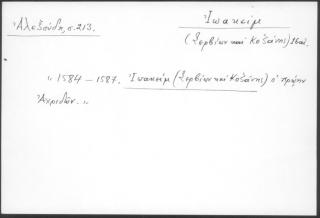 Ἀλεξούδη, σ. 213.
Ἰωακείμ
(Σερβίων καὶ Κοζάνης)
" 1584 – 1587. Ἰωακείμ (Σερβίων καὶ Κοζάνης) ὁ πρώην
Ἀχριδῶν..."